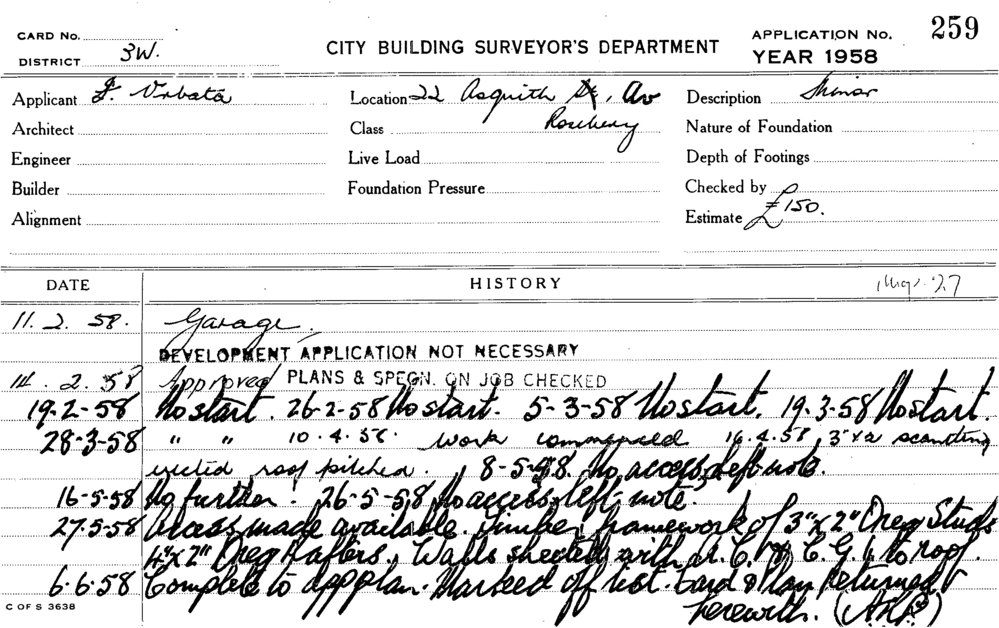 CARD No.
DISTRICT 3W.
CITY BUILDING SURVEYOR'S DEPARTMENT
APPLICATION No. 259
YEAR 1958
Applicant F. Vrbata Location 22 Asquith St, Av Description Minor
Architect Class Rosebery Nature of Foundation
Engineer Live Load Depth of Footings
Builder Foundation Pressure Checked by
Alignment Estimate £150.
DATE HISTORY
11. 2. 58. Garage.
DEVELOPMENT APPLICATION NOT NECESSARY
14. 2. 58 Approved PLANS & SPECN. ON JOB CHECKED
19-2-58 No start. 26-2-58 No start. 5-3-58 No start. 19.3-58 No start.
28-3-58 " " 10.4.58. work commenced 16.4.58, 3"x2 scantling
erected roof pitched. 8-5-58. No access, left note.
16-5-58 No further. 26-5-58 No access, left note.
27-5-58 Access made available. Timber framework of 3"x2" Oreg Studs
4"x2" Oreg Rafters. Walls sheeted with A.C. & C.G.I. to roof.
6-6-58 Complete to app plan. Marked off list. Card & Plan Returned
herewith.
C OF S 3638